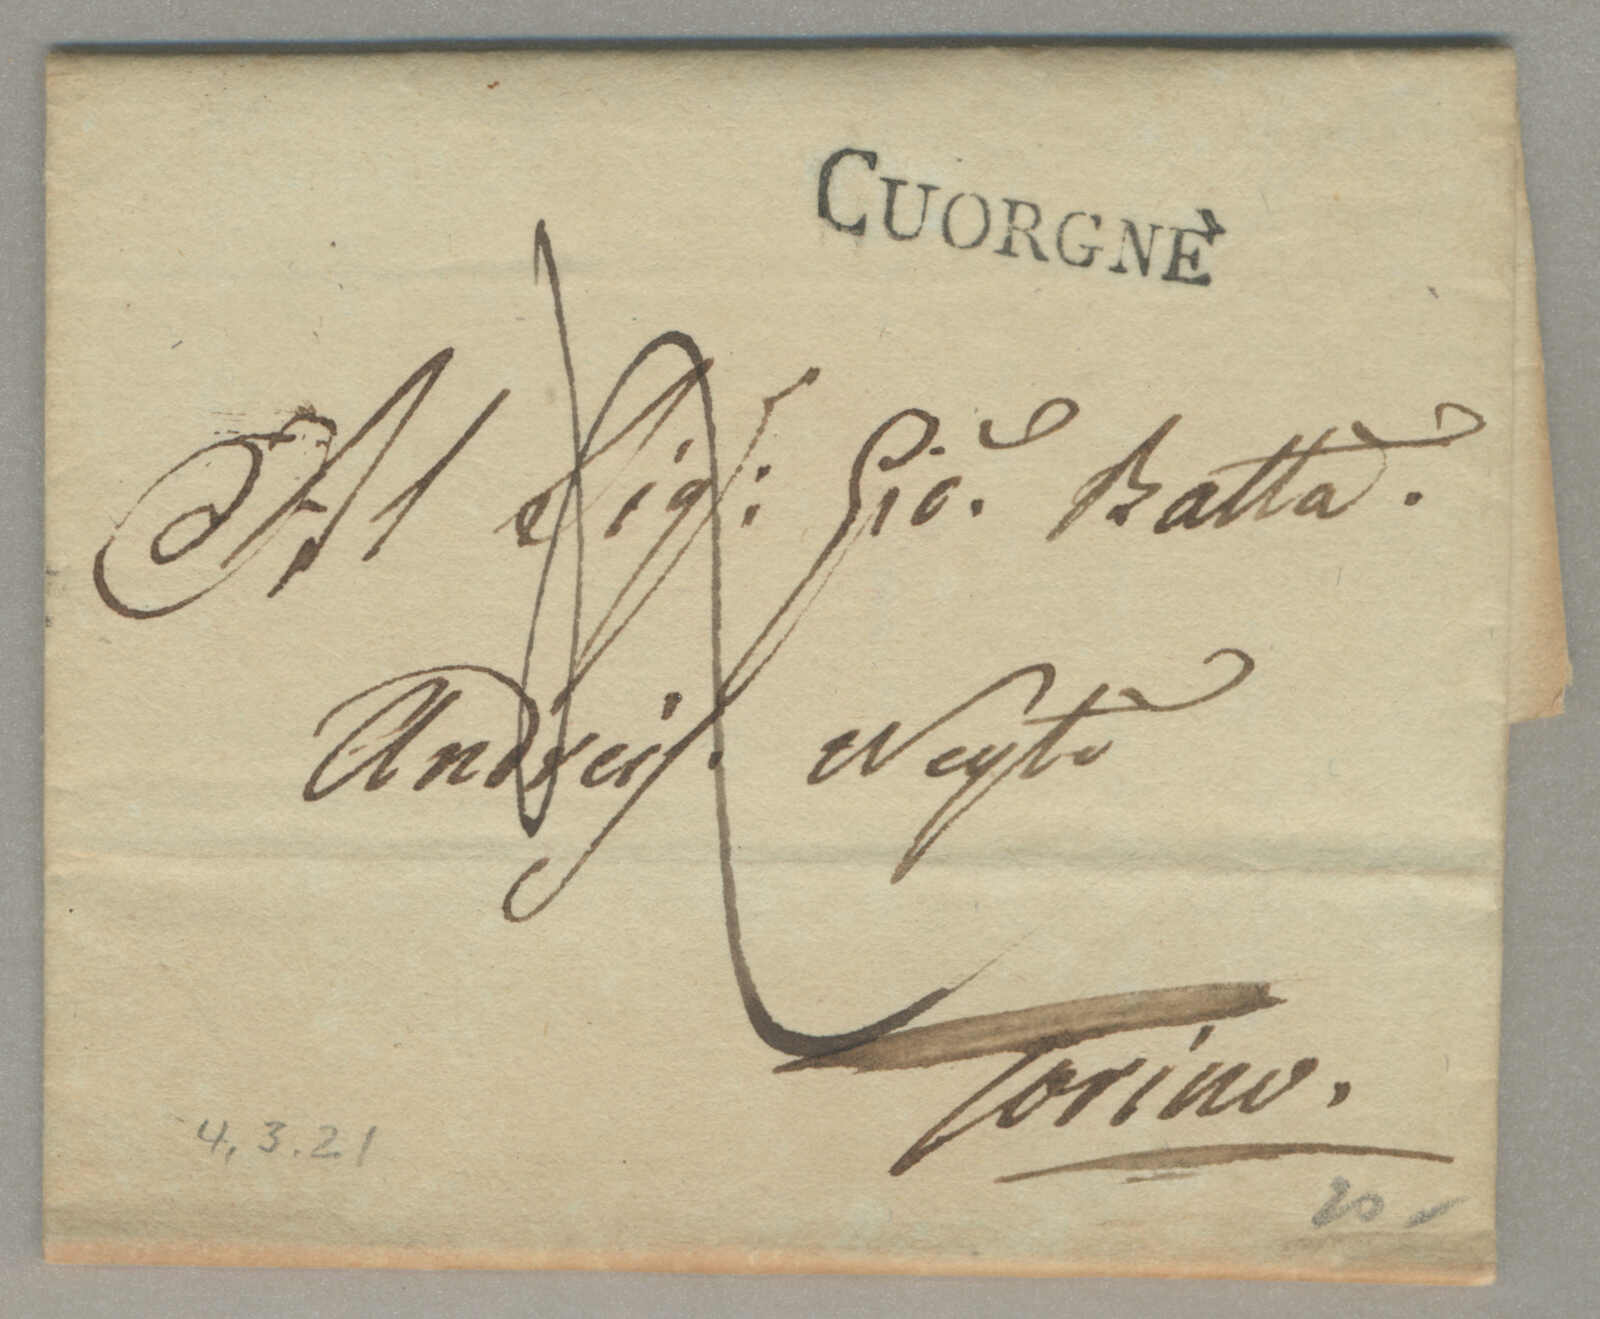 CUORGNÈ
Al Sig.r: Gio. Batta.
Andreis.
Torino.
4.3.21
20